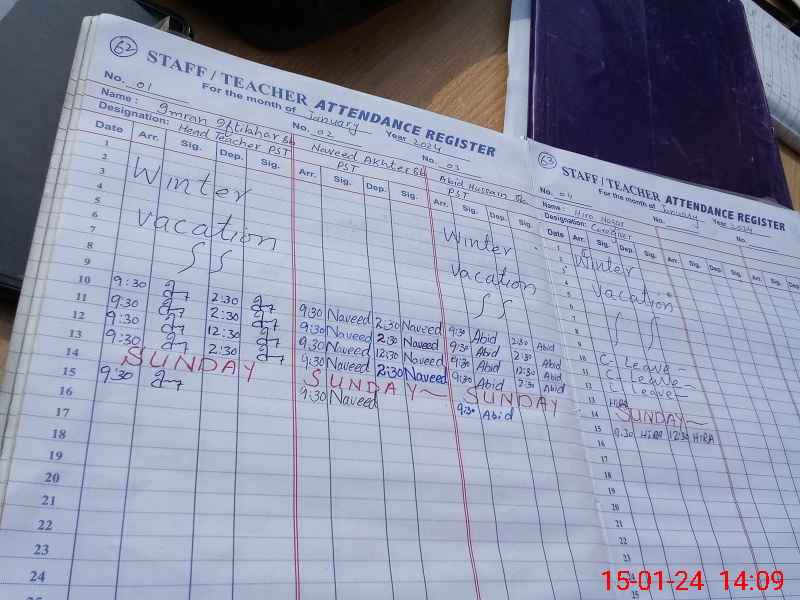 62 STAFF/TEACHER ATTENDANCE REGISTER
For the month of January Year 2024
No. 01 No. 02 No. 03
Name: Imran Iftikhar Sb Naveed Akhter Sb Abid Hussain Sb
Designation: Head Teacher PST PST PST
Date Arr. Sig. Dep. Sig. Arr. Sig. Dep. Sig. Arr. Sig. Dep. Sig.
1
2
3 Winter
4
5
6 Vacation Winter
7
8 Vacation
9
10 9:30 2:30 9:30 Naveed 2:30 Naveed 9:30 Abid 2:30 Abid
11 9:30 2:30 9:30 Naveed 2:30 Naveed 9:30 Abid 2:30 Abid
12 9:30 12:30 9:30 Naveed 12:30 Naveed 9:30 Abid 12:30 Abid
13 9:30 2:30 9:30 Naveed 2:30 Naveed 9:30 Abid 2:30 Abid
14 SUNDAY SUNDAY SUNDAY
15 9:30 9:30 Naveed 9:30 Abid
16
17
18
19
20
21
22
23
24
63 STAFF/TEACHER ATTENDANCE REGISTER
For the month of January Year 2024
No. 04 No. No.
Name:
Designation:
Date Arr. Sig. Dep. Sig. Arr. Sig. Dep. Sig. Arr. Sig. Dep. Sig.
1
2 Winter
3
4
5 Vacation
6
7
8
9
10 C-Leave
11 C-Leave
12 C-Leave
13 HIRA
14 SUNDAY
15 9:30 HIRA 12:30 HIRA
16
17
18
19
20
21
22
23
24
15-01-24 14:09